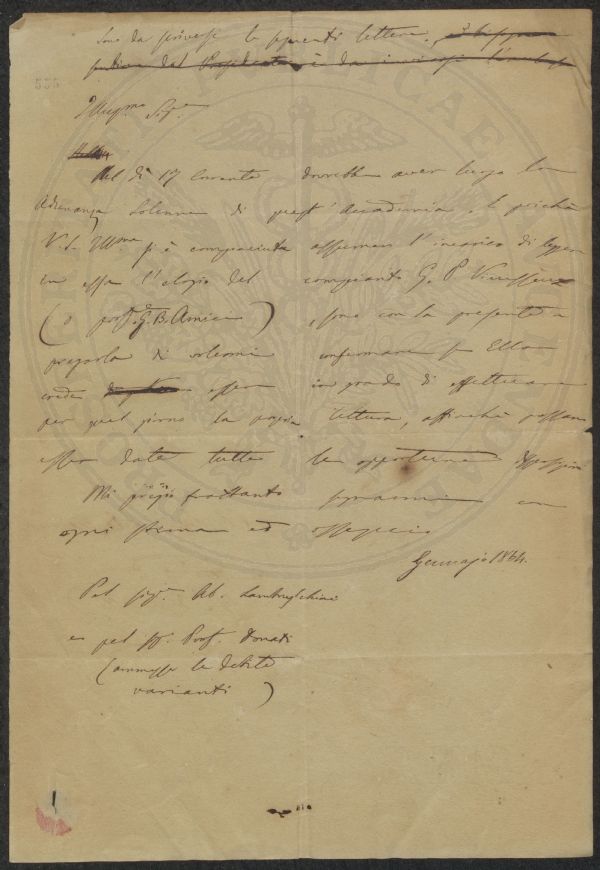 Sono da scriversi le seguenti lettere,
555
Illus.mo Sig.re
Nel dì 17 Corrente dovrebbe aver luogo la
Adunanza Solenne di quest'Accademia, e poichè
V. S. Ill.ma si è compiaciuta assumere l'incarico di leggere
in essa l'elogio del compianto G. P. Vieusseux
(o prof. G. B. Amici) sono con la presente a
pregarla di volermi confermare se Ella
crede essere in grado di effettuare
per quel giorno la propria lettura, affinchè possano
esser date tutte le opportune disposizioni
Mi pregio frattanto segnarmi con
ogni stima ed ossequio
Gennajo 1864.
Pel sig.r Ab. Lambruschini
e pel Sig. Prof. Donati
(ammesse le debite
varianti)